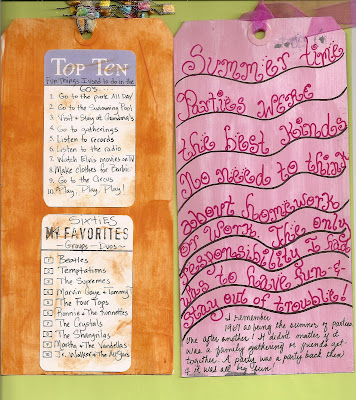 TOP TEN
Fun Things I used to do in the
60's
1. Go to the park All Day
2. Go to the Swimming Pool
3. Visit & Stay at Grandma's
4. Go to gatherings
5. Listen to records
6. Listen to the radio
7. Watch Elvis movies on TV
8. Make clothes for Barbie
9. Go to the Circus
10. Play, Play, Play!
SIXTIES
My FAVORITES
-Groups - Duos-
1 Beatles
2 Temptations
3 The Supremes
4 Marvin Gaye & Tammy
5 The Four Tops
6 Ronnie & The Ronnettes
7 The Crystals
8 The Shangrilas
9 Martha & The Vandellas
10 Jr. Walker & The All Stars
Summer time
Parties were
the best kinds
No need to think
about homework
or Work. The only
responsibility I had
was to have fun &
Stay out of trouble!
I remember
1967 as being the summer of parties
One after another! It didn't matter if it
was a family gathering or friends get
together. A party was a party back then
& it was all big fun!